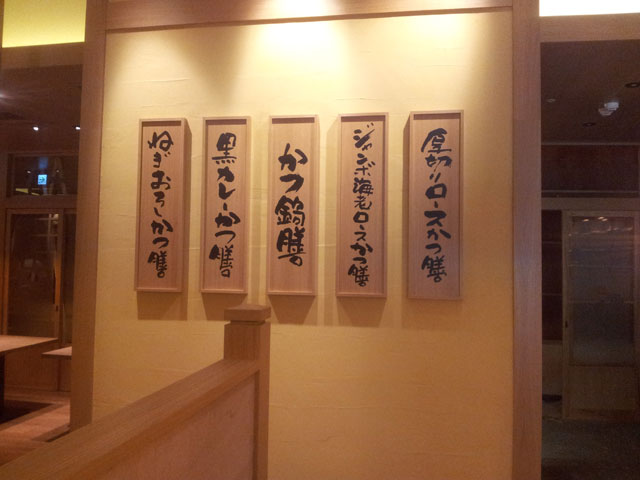 厚切りロースかつ膳
ジャンボ海老ロースかつ膳
かつ鍋膳
黒カレーかつ膳
ねぎおろしかつ膳